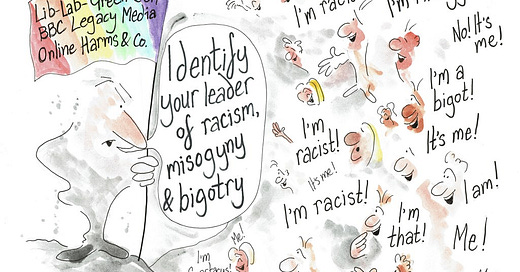 Lib-Lab-Green-Con
BBC Legacy Media
Online Harms & Co.
Identify
your leader
of racism,
misogyny
& bigotry
I'm racist!
No! It's
me!
I'm a
bigot!
It's me!
I'm
racist!
It's me!
I'm racist!
I am!
I'm
that!
Me!
Me!
I'm
Spartacus!